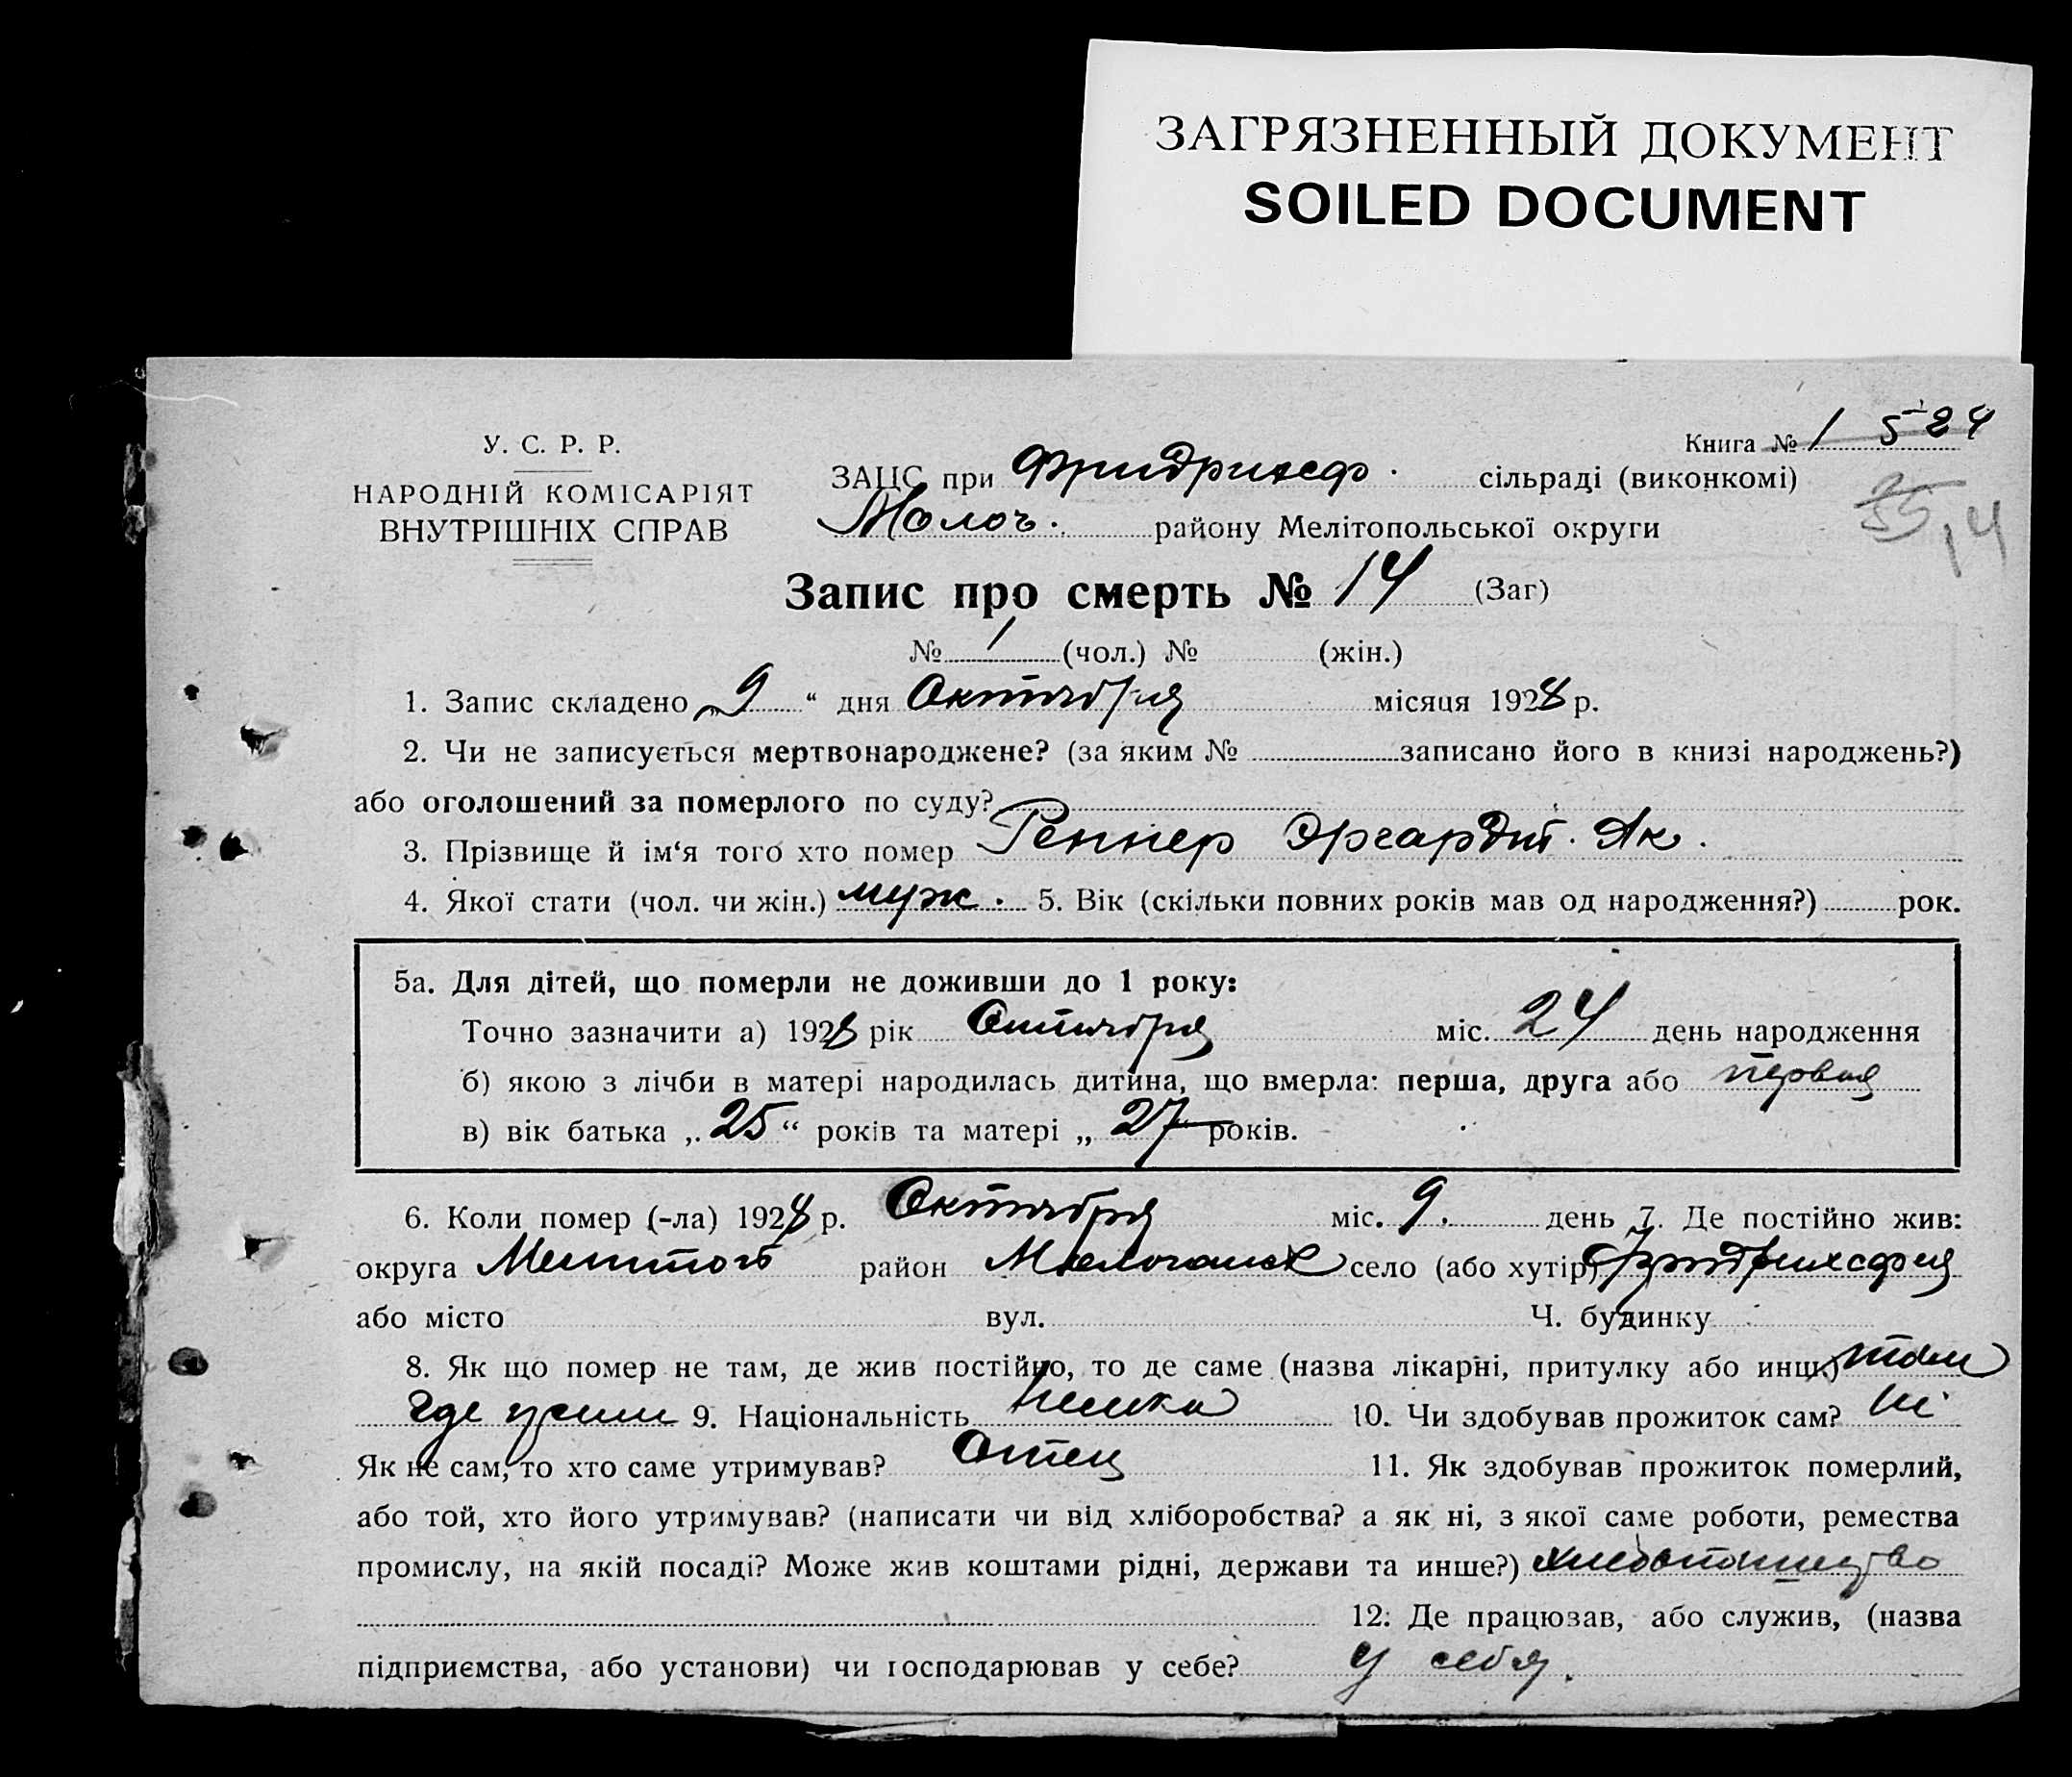 ЗАГРЯЗНЕННЫЙ ДОКУМЕНТ
SOILED DOCUMENT
У. С. Р. Р.
НАРОДНІЙ КОМІСАРІЯТ
ВНУТРІШНІХ СПРАВ
Книга № 1 524
ЗАЦС при Фридрихсф. сільраді (виконкомі)
Молоч. району Мелітопольської округи
14
Запис про смерть № 14 (Заг)
№ 1 (чол.) № (жін.)
1. Запис складено „9“ дня Октября місяця 1928 р.
2. Чи не записується мертвонароджене? (за яким № записано його в книзі народжень?)
або оголошений за померлого по суду?
3. Прізвище й ім‘я того хто помер Реннер Эргардт. Як.
4. Якої стати (чол. чи жін.) муж. 5. Вік (скільки повних років мав од народження?) рок.
5а. Для дітей, що померли не доживши до 1 року:
Точно зазначити а) 1928 рік Октября міс. 24 день народження
б) якою з лічби в матері народилась дитина, що вмерла: перша, друга або первая
в) вік батька „25“ років та матері „27 років.
6. Коли помер (-ла) 1928 р. Октября міс. 9. день 7. Де постійно жив:
округа Мелитоп район Молочанск село (або хутір)
або місто вул. Ч. будинку
8. Як що помер не там, де жив постійно, то де саме (назва лікарні, притулку або инш.) там
где жили 9. Національність 10. Чи здобував прожиток сам? ні
Як не сам, то хто саме утримував? Отец 11. Як здобував прожиток померлий,
або той, хто його утримував? (написати чи від хліборобства? а як ні, з якої саме роботи, ремества
промислу, на якій посаді? Може жив коштами рідні, держави та инше?) хлебопашество
12. Де працював, або служив, (назва
підприємства, або установи) чи господарював у себе? У себя.